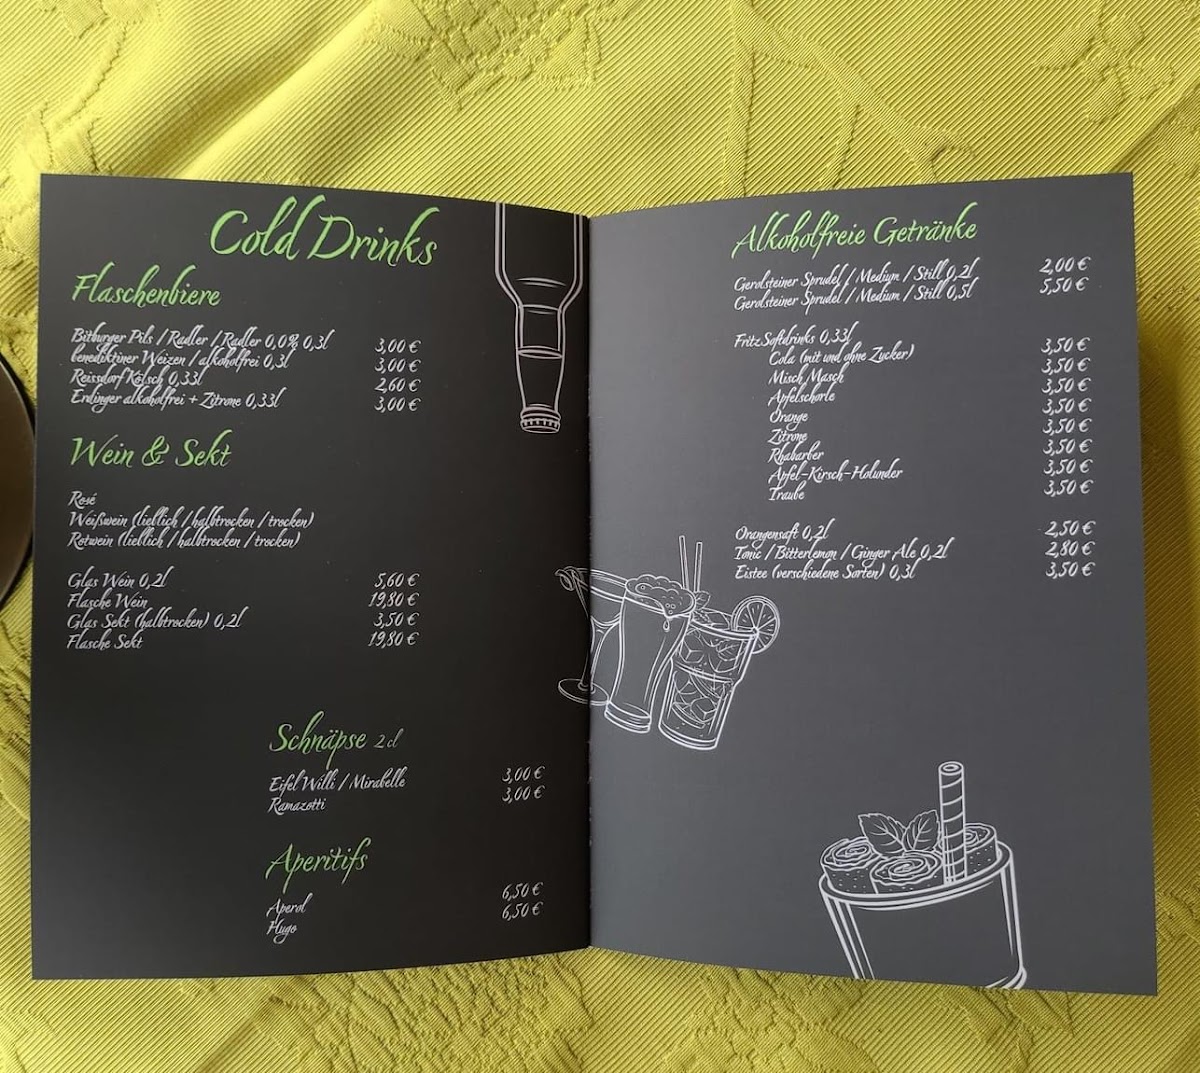 Cold Drinks
Flaschenbiere
Bitburger Pils / Radler / Radler 0,0% 0,3l 3,00 €
benediktiner Weizen / alkoholfrei 0,3l 3,00 €
Reissdorf Kölsch 0,33l 2,60 €
Erdinger alkoholfrei + Zitrone 0,33l 3,00 €
Wein & Sekt
Rosé
Weißwein (lieblich / halbtrocken / trocken)
Rotwein (lieblich / halbtrocken / trocken)
Glas Wein 0,2l 5,60 €
Flasche Wein 19,80 €
Glas Sekt (halbtrocken) 0,2l 3,50 €
Flasche Sekt 19,80 €
Schnäpse 2 cl
Eifel Willi / Mirabelle 3,00 €
Ramazotti 3,00 €
Aperitifs
Aperol 6,50 €
Hugo 6,50 €
Alkoholfreie Getränke
Gerolsteiner Sprudel / Medium / Still 0,2l 2,00 €
Gerolsteiner Sprudel / Medium / Still 0,5l 5,50 €
Fritz Softdrinks 0,33l
Cola (mit und ohne Zucker) 3,50 €
Misch Masch 3,50 €
Apfelschorle 3,50 €
Orange 3,50 €
Zitrone 3,50 €
Rhabarber 3,50 €
Apfel-Kirsch-Holunder 3,50 €
Traube 3,50 €
Orangensaft 0,2l 2,50 €
Tonic / Bitterlemon / Ginger Ale 0,2l 2,80 €
Eistee (verschiedene Sorten) 0,3l 3,50 €